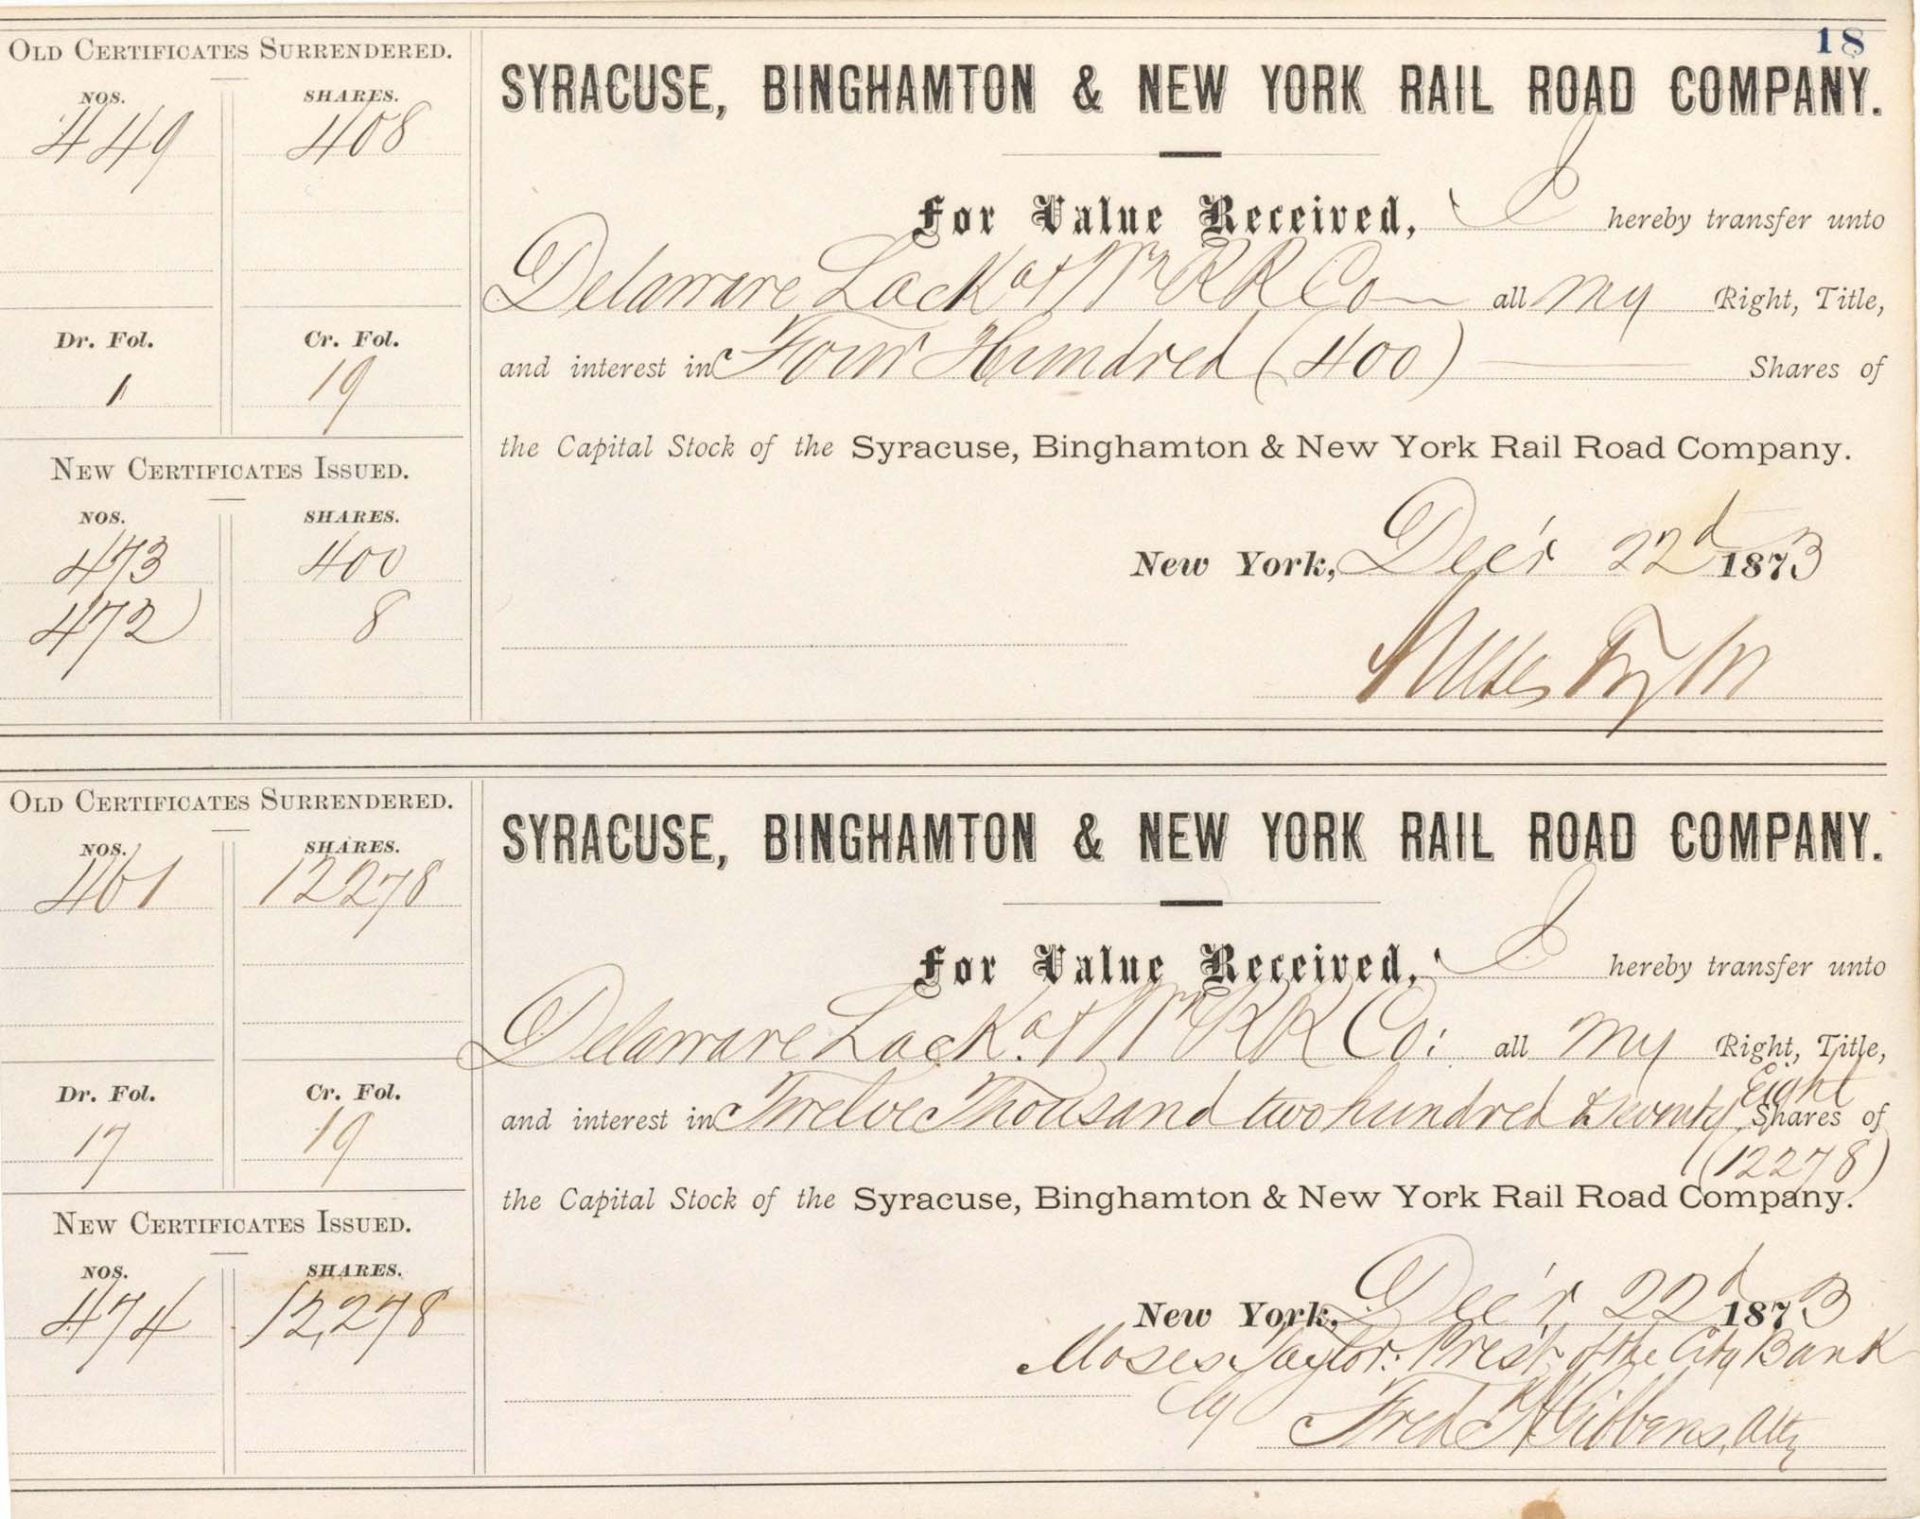 18
OLD CERTIFICATES SURRENDERED.
NOS. SHARES.
449 408
Dr. Fol. Cr. Fol.
1 19
NEW CERTIFICATES ISSUED.
NOS. SHARES.
473 400
472 8
SYRACUSE, BINGHAMTON & NEW YORK RAIL ROAD COMPANY.
For Value Received, I hereby transfer unto
Delaware Lack a & Wn R R Co all my Right, Title,
and interest in Four Hundred (400) Shares of
the Capital Stock of the Syracuse, Binghamton & New York Rail Road Company.
New York, Dec'r 22d 1873
Moses Taylor
OLD CERTIFICATES SURRENDERED.
NOS. SHARES.
461 12278
Dr. Fol. Cr. Fol.
17 19
NEW CERTIFICATES ISSUED.
NOS. SHARES.
474 12,278
SYRACUSE, BINGHAMTON & NEW YORK RAIL ROAD COMPANY.
For Value Received, I hereby transfer unto
Delaware Lack. a & Wn R R Co: all my Right, Title,
and interest in Twelve Thousand two hundred & seventy Eight Shares of
(12278)
the Capital Stock of the Syracuse, Binghamton & New York Rail Road Company.
New York, Dec'r 22d 1873
Moses Taylor: Prest of the City Bank
by Fred Gibbens, Atty